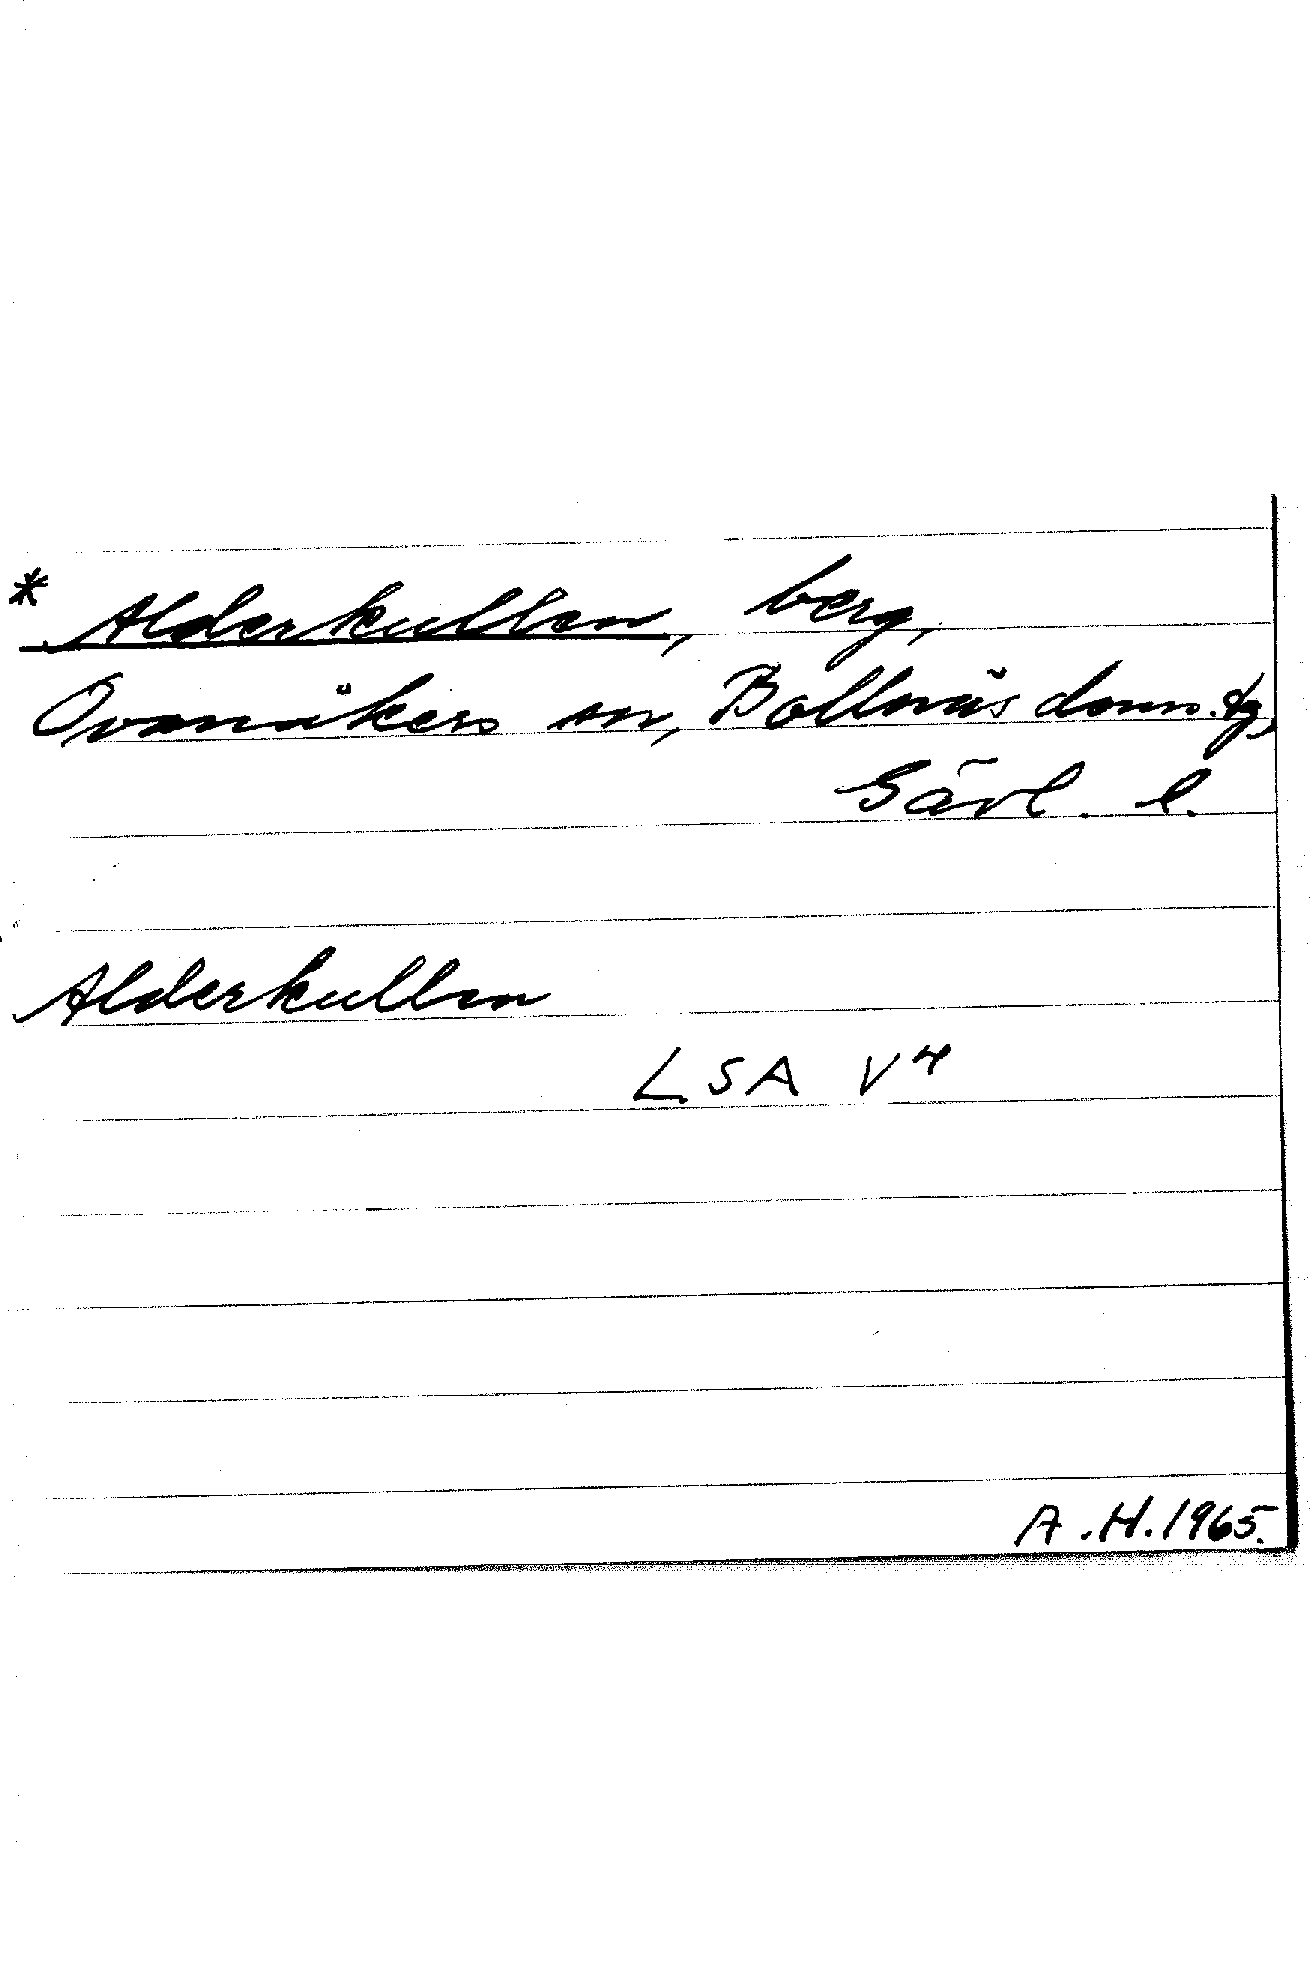 * Alderkullen, berg,
Ovanåkers sn, Bollnäs doms. tg,
Gävl. l.
Alderkullen
LSA V4
A.H. 1965.